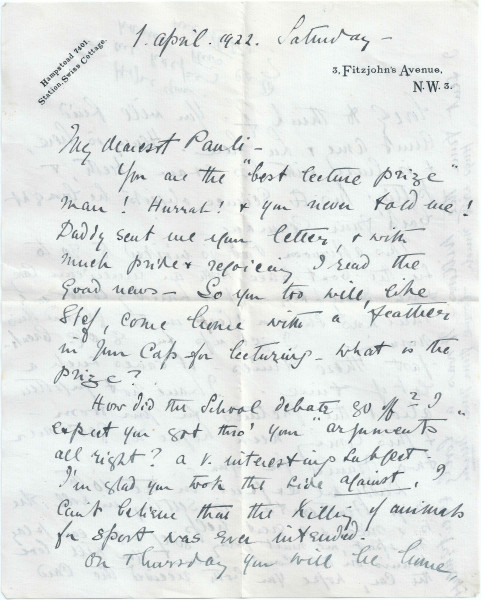 1. April. 1922. Saturday –
Hampstead 7401.
Station, Swiss Cottage.
3, Fitzjohn's Avenue,
N.W. 3.
My dearest Pauli –
You are the "best lecture prize"
man! Hurrah! & you never told me!
Daddy sent me your letter, & with
much pride & rejoicing I read the
Good news – So you too, will, like
Stef, come home with a feather
in your Cap, for lecturing – what is the
prize?
How did the School debate go off? I
expect you got thro' your "arguments"
all right? a v. interesting subject.
I'm glad you took the side against, I
Can't believe that the Killing of animals
for sport was ever intended.
On Thursday you will be home,